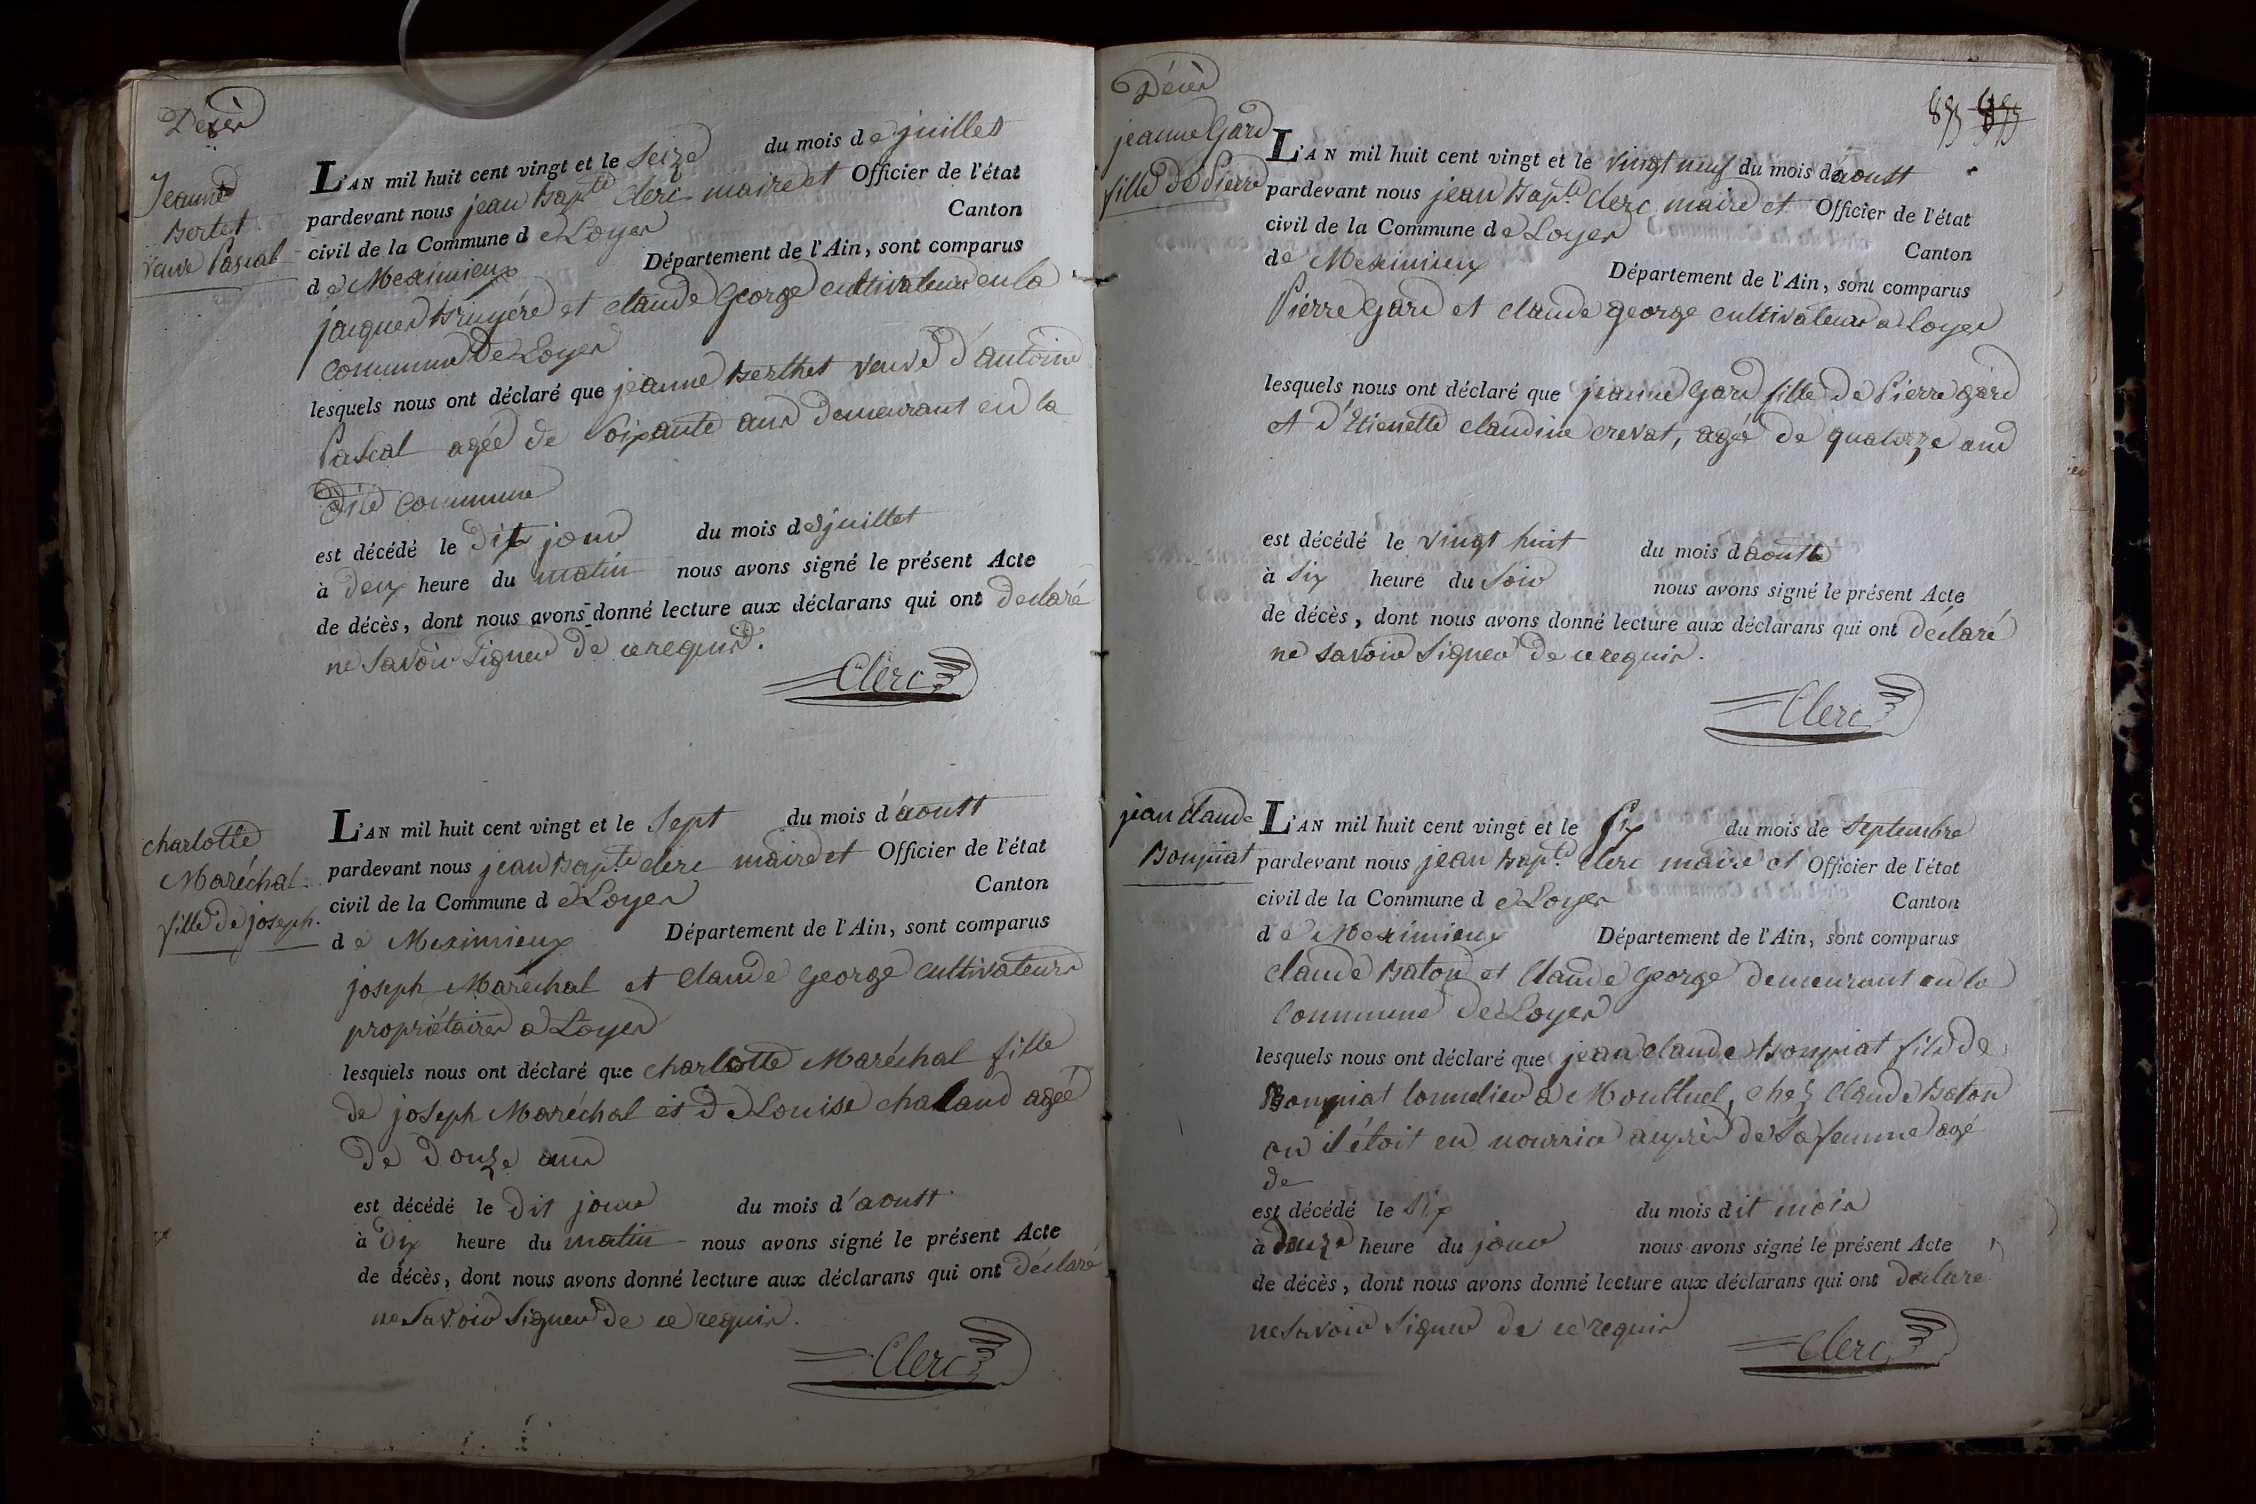 Décès
Jeanne
Bertet
veuve Pascal
L'AN mil huit cent vingt et le seize du mois de juillet
pardevant nous jean Bapte. Clerc maire et Officier de l'état
civil de la Commune de Loyes Canton
de Meximieux Département de l'Ain, sont comparus
jacques Bruyére et claude George cultivateurs en la
commune De Loyes
lesquels nous ont déclaré que jeanne Berthet veuve d'antoine
Pascal agée de soixante ans demeurant en la
dite commune
est décédé le dit jour du mois de juillet
à deux heure du matin nous avons signé le présent Acte
de décès, dont nous avons donné lecture aux déclarans qui ont declaré
ne savoir signer de ce requis.
Clerc
charlotte
Maréchal
fille de joseph.
L'AN mil huit cent vingt et le sept du mois d'aoust
pardevant nous jean Bapte. clerc maire et Officier de l'état
civil de la Commune de Loyes Canton
de Meximieux Département de l'Ain, sont comparus
joseph Maréchal et claude George cultivateurs
propriétaires a Loyes
lesquels nous ont déclaré que charlotte Maréchal fille
de joseph Maréchal et de Louise chaland agée
de douze ans
est décédé le dit jour du mois d'aoust
à dix heure du matin nous avons signé le présent Acte
de décès, dont nous avons donné lecture aux déclarans qui ont déclaré
ne savoir signer de ce requis.
Clerc
Décès
jeanne Gard
fille de Pierre
L'AN mil huit cent vingt et le vingt neuf du mois d'aoust
pardevant nous jean Bapte. Clerc maire et Officier de l'état
civil de la Commune de Loyes Canton
de Meximieux Département de l'Ain, sont comparus
Pierre Gard et claude george cultivateurs a Loyes
lesquels nous ont déclaré que jeanne Gard fille de Pierre gard
et d'Etienette claudine crevat, agée de quatorze ans
est décédé le vingt huit du mois d'aoust
à six heure du soir nous avons signé le présent Acte
de décès, dont nous avons donné lecture aux déclarans qui ont déclaré
ne savoir signer de ce requis.
Clerc
jean claude
Bonpiat
L'AN mil huit cent vingt et le six du mois de septembre
pardevant nous jean Bapte. Clerc maire et Officier de l'état
civil de la Commune de Loyes Canton
de Meximieux Département de l'Ain, sont comparus
claude Baton et Claude George demeurant en la
commune de Loyes
lesquels nous ont déclaré que jean claude Bonpiat fils de
Bonpiat tonnelier a Montluel, chez Claude Baton
ou il étoit en nourrice auprès de sa femme agé
de
est décédé le six du mois dit mois
à douze heure du jour nous avons signé le présent Acte
de décès, dont nous avons donné lecture aux déclarans qui ont declaré
ne savoir signer de ce requis
Clerc